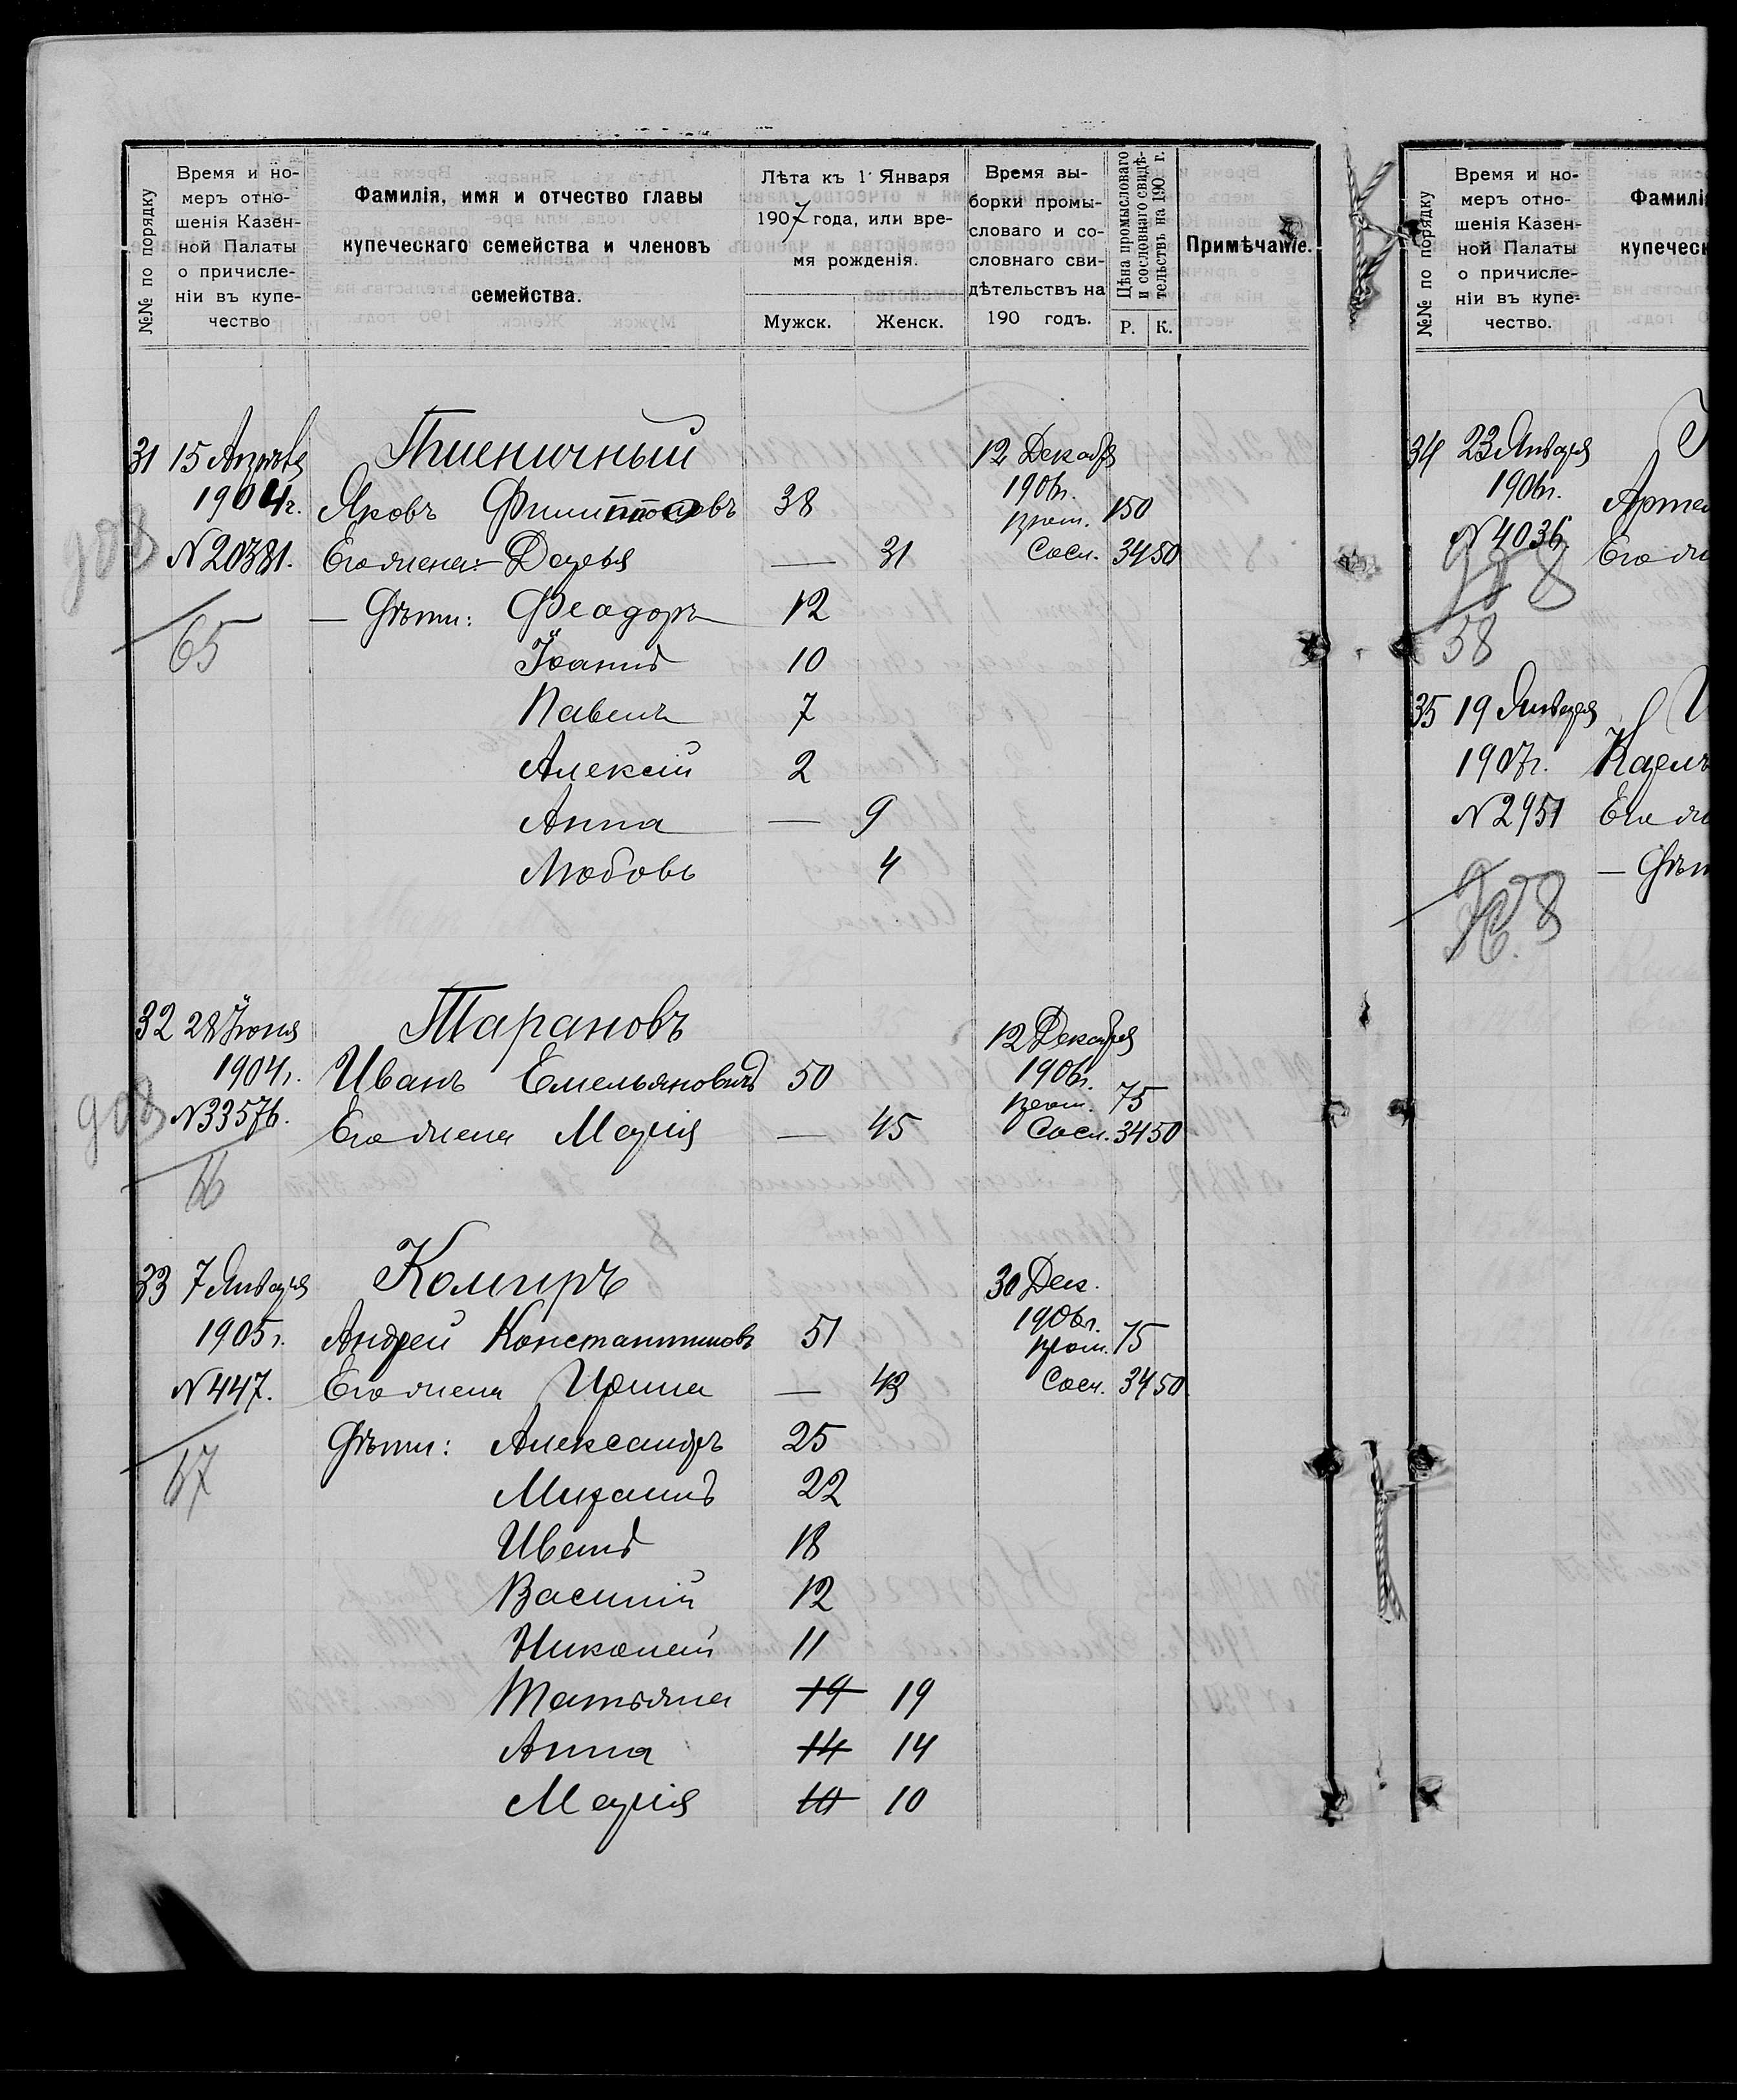 №№ по порядку
Время и но-
меръ отно-
шенія Казен-
ной Палаты
о причисле-
ніи въ купе-
чество
Фамилія, имя и отчество главы
купеческаго семейства и членовъ
семейства.
Лѣта къ 1 Января
1907 года, или вре-
мя рожденія.
Мужск. Женск.
Время вы-
борки промы-
словаго и со-
словнаго сви-
дѣтельствъ на
190 годъ.
Цѣна промысловаго
и сословнаго свидѣ-
тельствъ на 190 г.
Р. К.
Примѣчаніе.
31 15 Апрѣля Пшеничный 12 Декабря
1904 г. Яковъ Филипповъ 38 1906 г.
пром. 150
908 № 20381. Его жена: Дарья — 31 Сосл. 34 50
— Дѣти: Феодоръ 12
65 Іоаннъ 10
Павелъ 7
Алексѣй 2
Анна — 9
Любовь 4
32 28 Іюня Тарановъ 12 Декабря
1904 г. Иванъ Емельяновичъ 50 1906 г.
908 № 33576. пром. 75
Его жена Марія — 45 Сосл. 34 50
66
33 7 Января 30 Дек.
1905 г. Андрей Константиновъ 51 1906 г.
пром. 75
№ 447. Его жена Ирина — 43 Сосл. 34 50
Дѣти: Александръ 25
67 Михаилъ 22
Иванъ 18
Василій 12
Николай 11
Татьяна 19 19
Анна 14 14
Марія 10 10
№№ по порядку
Время и но-
меръ отно-
шенія Казен-
ной Палаты
о причисле-
ніи въ купе-
чество.
Фамилі
купеческ
34 23 Января
1906 г. Артем
№ 4036. Его ж
908
58
35 19 Января
1907 г. Карлъ
№ 2951 Его ж
— Дѣт
908